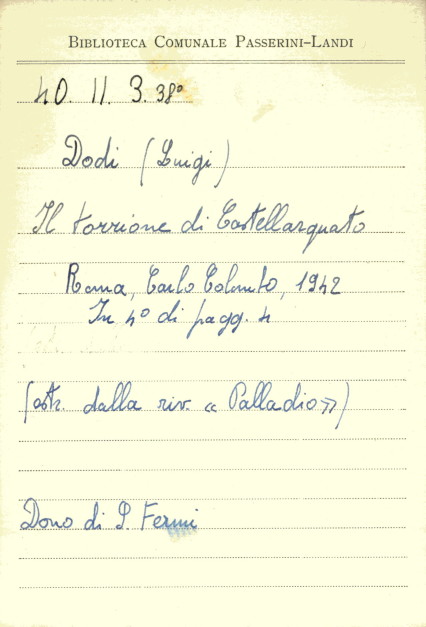 BIBLIOTECA COMUNALE PASSERINI-LANDI
40. 11. 3. 38º
Dodi (Luigi)
Il torrione di Castellarquato
Roma, Carlo Colombo, 1942
In 4º di pagg. 4
(estr. dalla riv. « Palladio»)
Dono di S. Fermi